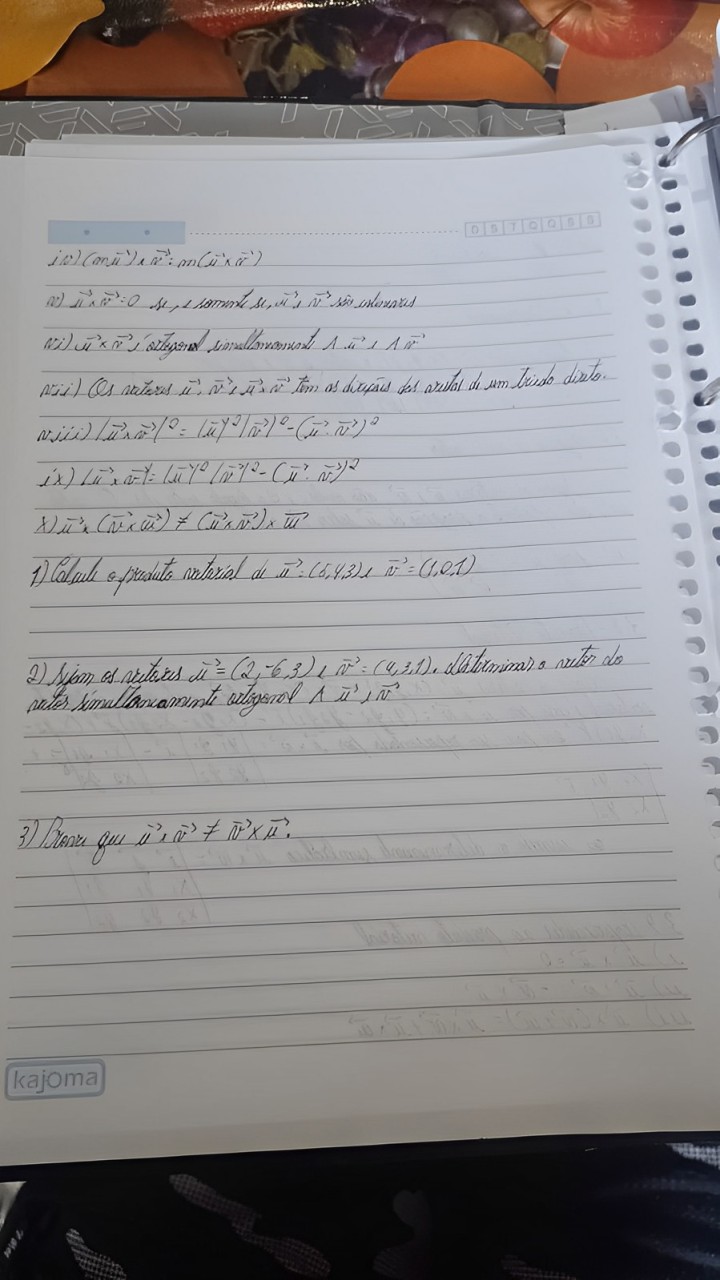 D S T Q Q S S
iv) (m u⃗) x v⃗ = m(u⃗ x v⃗)
v) u⃗ x v⃗ = 0 se, e somente se, u⃗ e v⃗ são colineares
vi) u⃗ x v⃗ é ortogonal simultaneamente A u⃗ e A v⃗
vii) Os vetores u⃗, v⃗ e u⃗ x v⃗ tem as direções das arestas de um triedo direto.
viii) |u⃗ x v⃗|² = |u⃗|² |v⃗|² - (u⃗ . v⃗)²
ix) |u⃗ x v⃗| = |u⃗|² |v⃗|² - (u⃗ . v⃗)²
x) u⃗ x (v⃗ x w⃗) ≠ (u⃗ x v⃗) x w⃗
1) Calcule o produto vetorial de u⃗ = (5,4,3) e v⃗ = (1,0,1)
2) Sejam os vetores u⃗ = (2,-6,3) e v⃗ = (4,3,1). determinar o vetor do
vetor simultaneamente ortogonal A u⃗ e v⃗
3) Prove que u⃗ x v⃗ ≠ v⃗ x u⃗.
kajoma